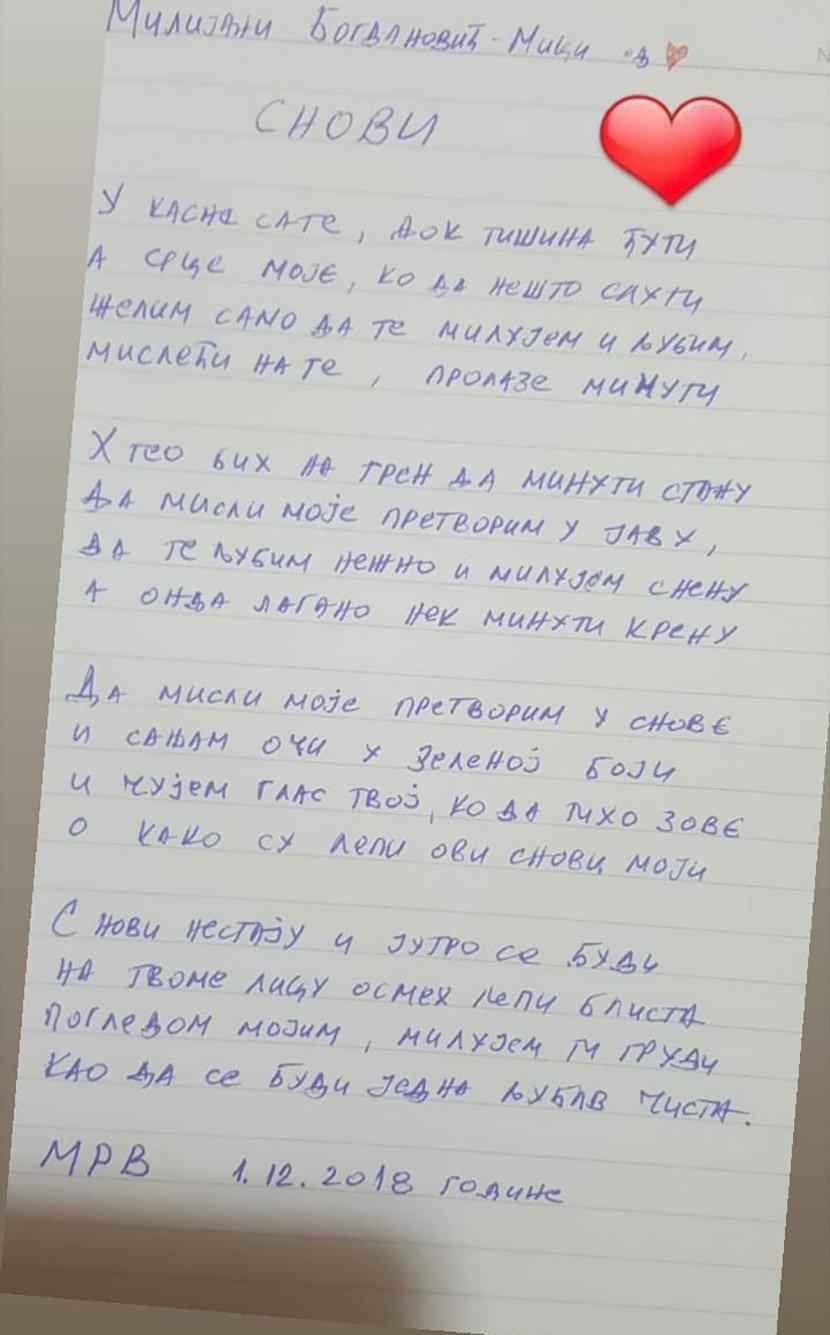 Милијани Богдановић - Мици од
СНОВИ
У касне сате, док тишина ћути
а срце моје, ко да нешто слути
желим само да те милујем и љубим,
мислећи на те, пролазе минути
Хтео бих на трен да минути стану
да мисли моје претворим у јаву,
да те љубим нежно и милујем снену
а онда лагано нек минути крену
Да мисли моје претворим у снове
и сањам очи у зеленој боји
и чујем глас твој, ко да тихо зове
о како су лепи ови снови моји
Снови нестају и јутро се буди
на твоме лицу осмех лепи блиста
погледом мојим, милујем ти груди
као да се буди једна љубав чиста.
МРВ 1.12.2018 године